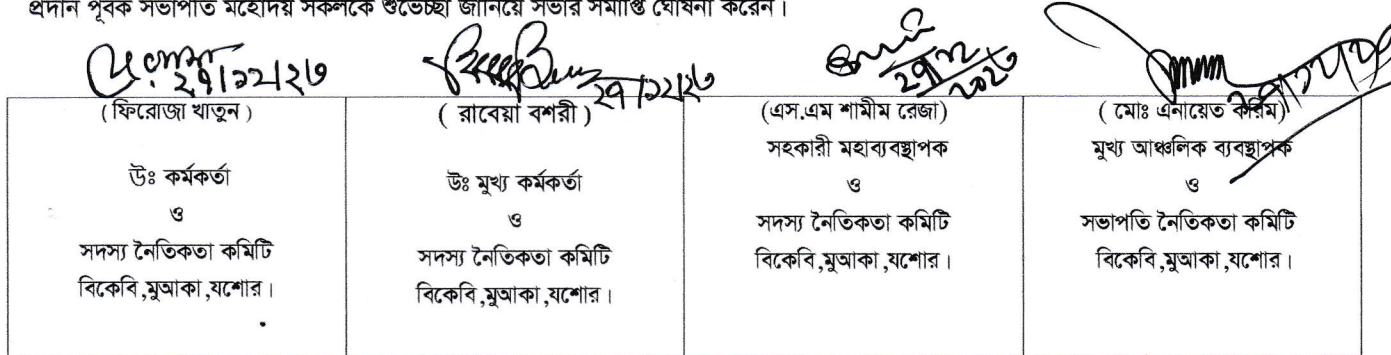 প্রদান পূর্বক সভাপতি মহোদয় সকলকে শুভেচ্ছা জানিয়ে সভার সমাপ্তি ঘোষনা করেন।
২৭/১২/২৩
২৭/১২/২৩
২৭/১২/২০২৩
(ফিরোজা খাতুন)
উঃ কর্মকর্তা
ও
সদস্য নৈতিকতা কমিটি
বিকেবি,মুআকা,যশোর।
( রাবেয়া বশরী )
উঃ মুখ্য কর্মকর্তা
ও
সদস্য নৈতিকতা কমিটি
বিকেবি,মুআকা,যশোর।
(এস.এম শামীম রেজা)
সহকারী মহাব্যবস্থাপক
ও
সদস্য নৈতিকতা কমিটি
বিকেবি,মুআকা,যশোর।
( মোঃ এনায়েত করিম)
মুখ্য আঞ্চলিক ব্যবস্থাপক
ও
সভাপতি নৈতিকতা কমিটি
বিকেবি,মুআকা,যশোর।